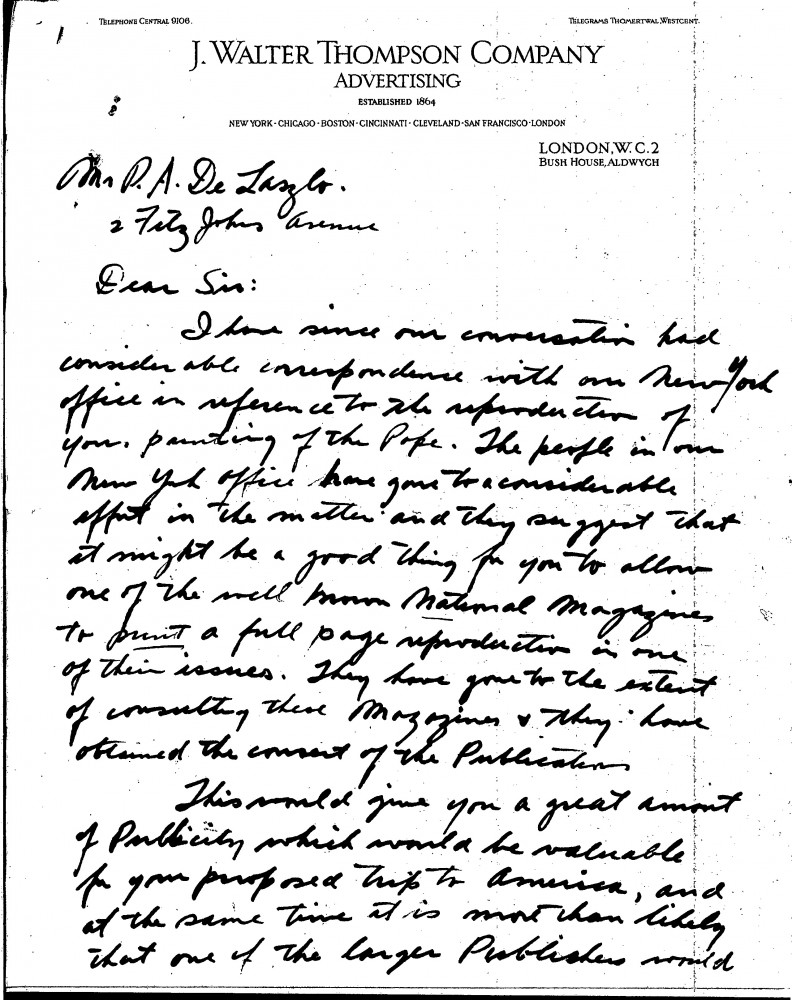 TELEPHONE CENTRAL 9106.
TELEGRAMS THOMERTWAL, WESTCENT.
J. WALTER THOMPSON COMPANY
ADVERTISING
ESTABLISHED 1864
NEW YORK - CHICAGO - BOSTON - CINCINNATI - CLEVELAND - SAN FRANCISCO - LONDON
LONDON, W.C.2
BUSH HOUSE, ALDWYCH
Mr P. A. De Laszlo.
2 Fitz Johns Avenue
Dear Sir:
I have since our conversation had
considerable correspondence with our New York
office in reference to the reproduction of
your painting of the Pope. The people in our
New York office have gone to a considerable
effort in the matter and they suggest that
it might be a good thing for you to allow
one of the well known National Magazines
to print a full page reproduction in one
of their issues. They have gone to the extent
of consulting these Magazines & they have
obtained the consent of the Publications
This would give you a great amount
of Publicity which would be valuable
for your proposed trip to America, and
at the same time it is more than likely
that one of the larger Publishers would